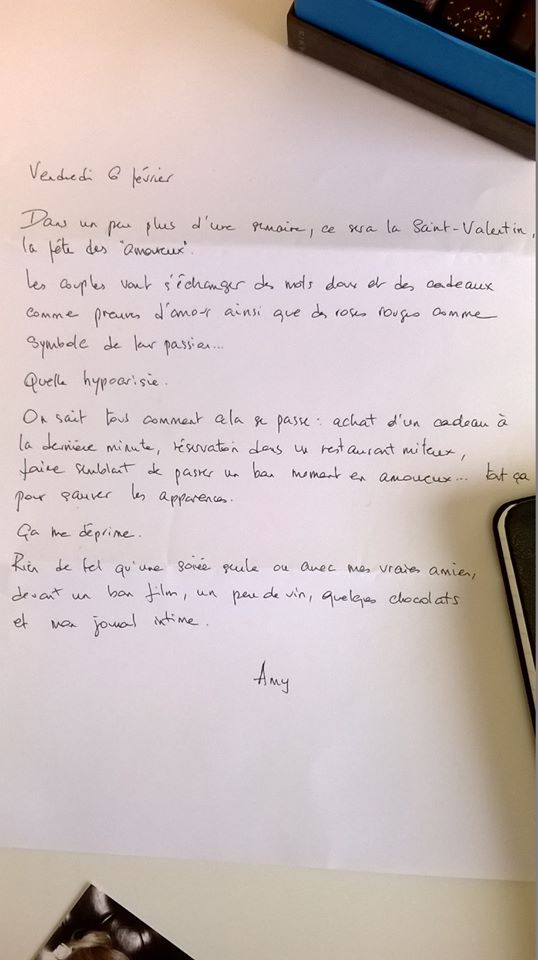 Vendredi 6 février
Dans un peu plus d'une semaine, ce sera la Saint-Valentin,
la fête des "amoureux".
Les couples vont s'échanger des mots doux et des cadeaux
comme preuves d'amour ainsi que des roses rouges comme
symbole de leur passion...
Quelle hypocrisie.
On sait tous comment cela se passe : achat d'un cadeau à
la dernière minute, réservation dans un restaurant miteux,
faire semblant de passer un bon moment en amoureux... tout ça
pour sauver les apparences.
Ça me déprime.
Rien de tel qu'une soirée seule ou avec mes vraies amies,
devant un bon film, un peu de vin, quelques chocolats
et mon journal intime.
Amy